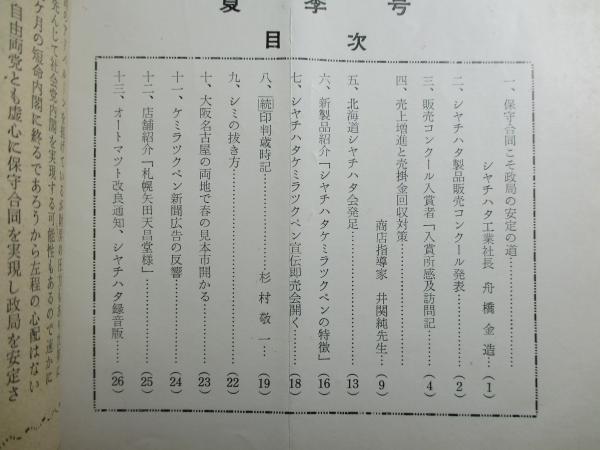 夏季号
目次
一、保守合同こそ政局の安定の道………
シヤチハタ工業社長 舟橋金造…(1)
二、シヤチハタ製品販売コンクール発表………(2)
三、販売コンクール入賞者「入賞所感及訪問記………(4)
四、売上増進と売掛金回収対策………
商店指導家 井関純先生…(9)
五、北海道シヤチハタ会発足………(13)
六、新製品紹介「シヤチハタケミラツクペンの特徴」…(16)
七、シヤチハタケミラツクペン宣伝即売会開く………(18)
八、続印判歳時記………杉村敬一…(19)
九、シミの抜き方………(22)
十、大阪名古屋の両地で春の見本市開かる………(23)
十一、ケミラツクペン新聞広告の反響………(24)
十二、店舗紹介「札幌矢田天昌堂様」………(25)
十三、オートマツト改良通知、シヤチハタ録音版……(26)
んじて社会党内閣を実現する可能性もあるので速かに
ケ月の短命内閣に終るであろうから左程の心配はない
自由両党とも虚心に保守合同を実現し政局を安定さ